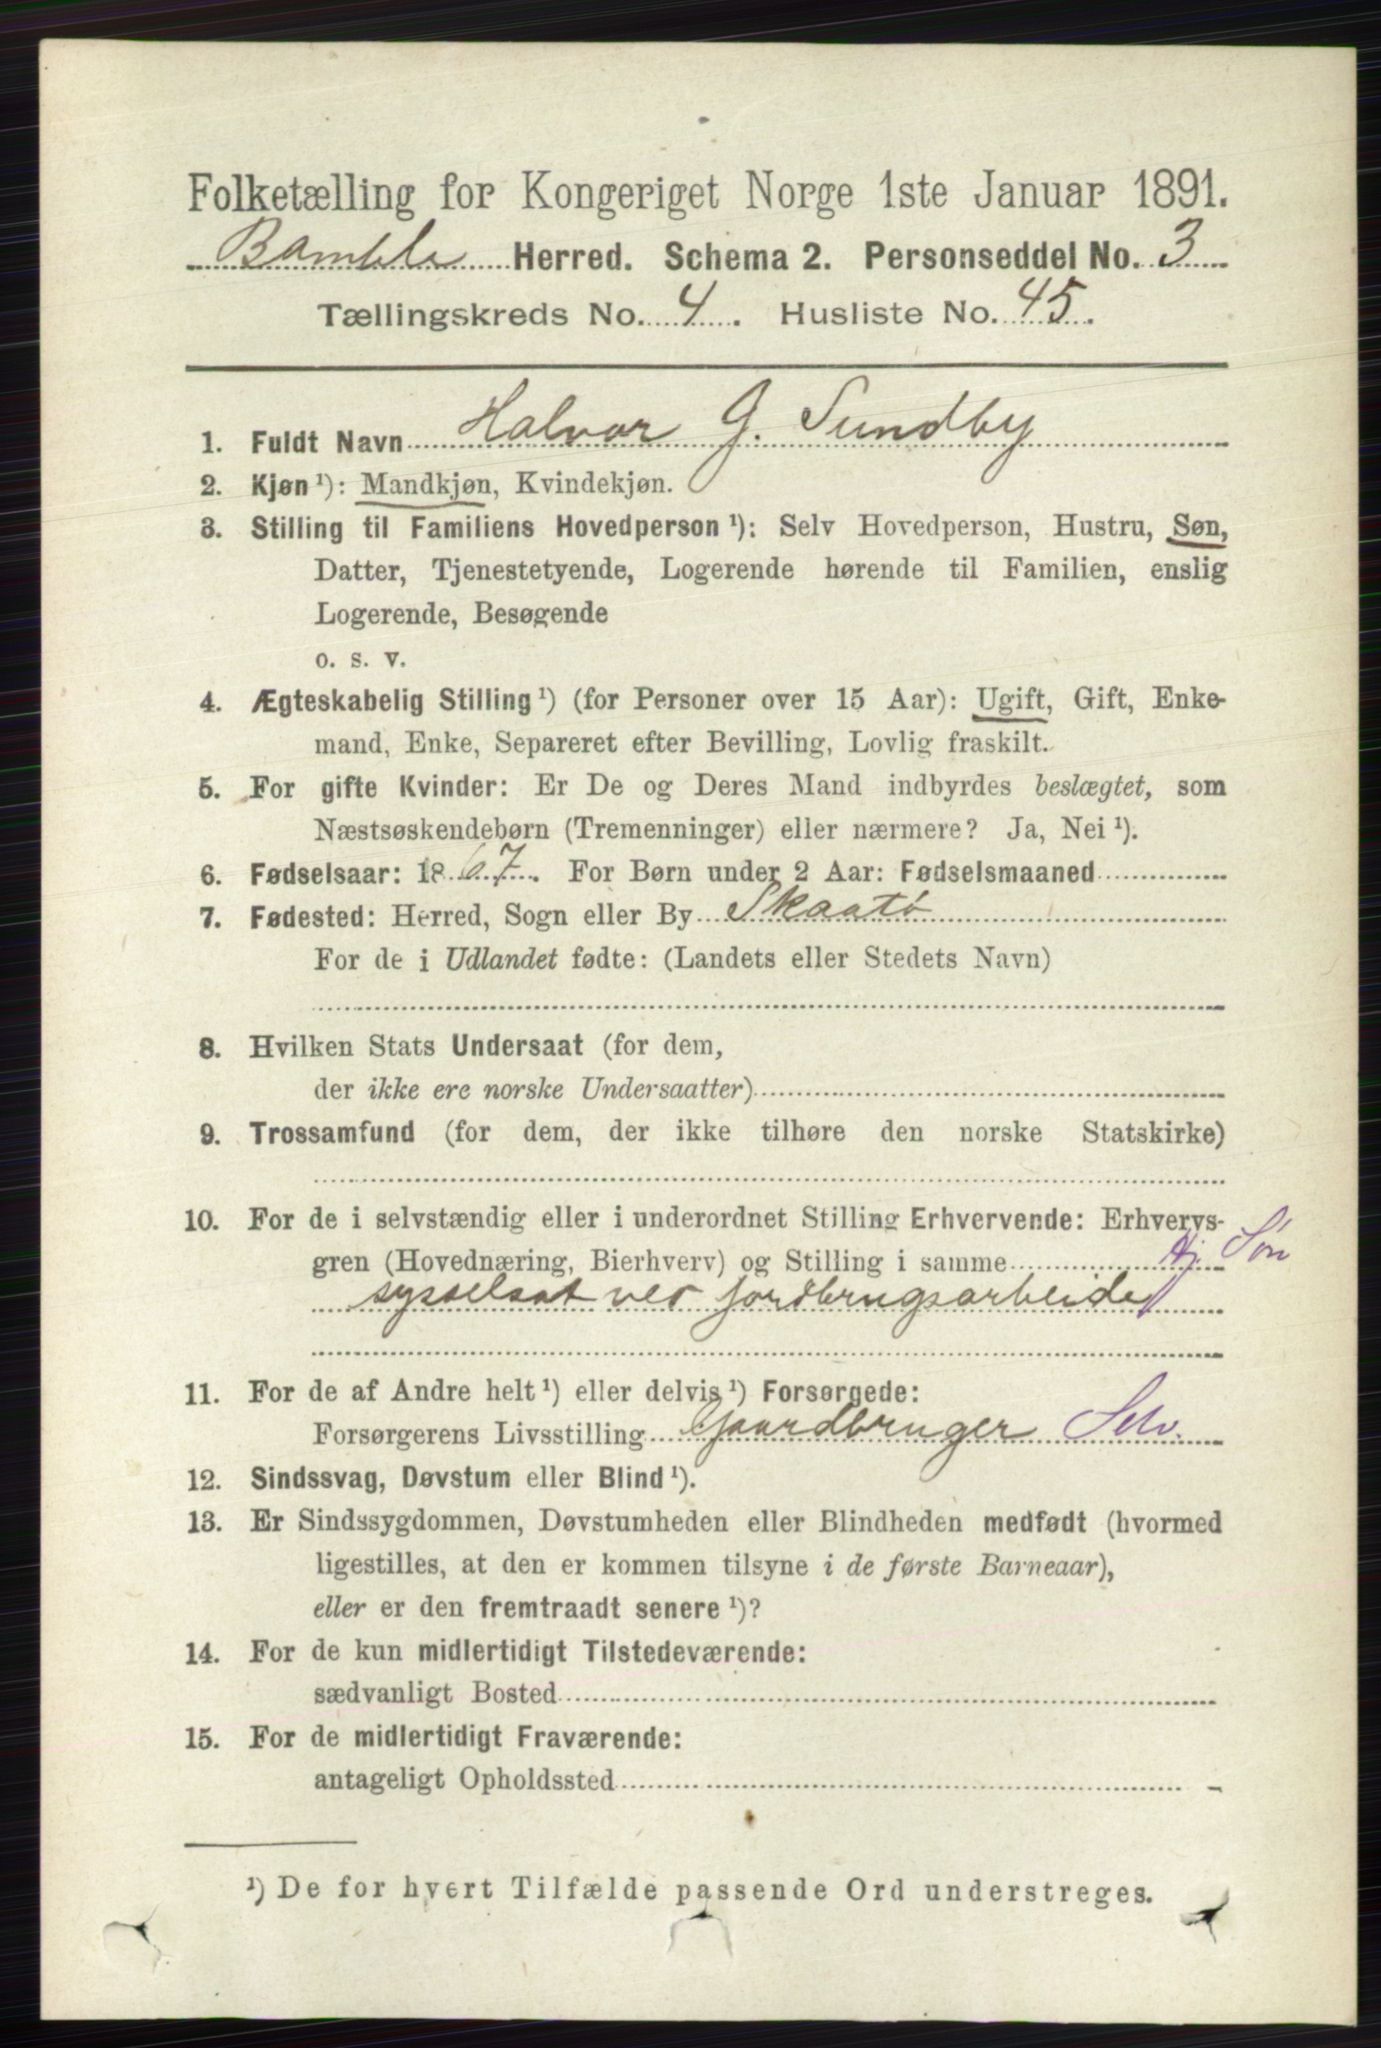 Folketælling for Kongeriget Norge 1ste Januar 1891.
Bamble Herred. Schema 2. Personseddel No. 3
Tællingskreds No. 4. Husliste No. 45.
1. Fuldt Navn Halvor G. Sundby
2. Kjøn ¹): Mandkjøn, Kvindekjøn.
3. Stilling til Familiens Hovedperson ¹): Selv Hovedperson, Hustru, Søn,
Datter, Tjenestetyende, Logerende hørende til Familien, enslig
Logerende, Besøgende
o. s. v.
4. Ægteskabelig Stilling ¹) (for Personer over 15 Aar): Ugift, Gift, Enke-
mand, Enke, Separeret efter Bevilling, Lovlig fraskilt.
5. For gifte Kvinder: Er De og Deres Mand indbyrdes beslægtet, som
Næstsøskendebørn (Tremenninger) eller nærmere? Ja, Nei ¹).
6. Fødselsaar: 1867. For Børn under 2 Aar: Fødselsmaaned
7. Fødested: Herred, Sogn eller By Skaatø
For de i Udlandet fødte: (Landets eller Stedets Navn)
8. Hvilken Stats Undersaat (for dem,
der ikke ere norske Undersaatter)
9. Trossamfund (for dem, der ikke tilhøre den norske Statskirke)
10. For de i selvstændig eller i underordnet Stilling Erhvervende: Erhvervs-
gren (Hovednæring, Bierhverv) og Stilling i samme Søn
sysselsat ved jordbrugsarbeide
11. For de af Andre helt ¹) eller delvis ¹) Forsørgede:
Forsørgerens Livsstilling Gaardbruger Selv.
12. Sindssvag, Døvstum eller Blind ¹).
13. Er Sindssygdommen, Døvstumheden eller Blindheden medfødt (hvormed
ligestilles, at den er kommen tilsyne i de første Barneaar),
eller er den fremtraadt senere ¹)?
14. For de kun midlertidigt Tilstedeværende:
sædvanligt Bosted
15. For de midlertidigt Fraværende:
antageligt Opholdssted
¹) De for hvert Tilfælde passende Ord understreges.